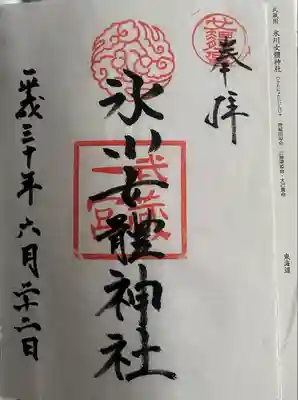 武蔵国 氷川女體神社
東海道
奉拝
氷川女體神社
武蔵国
一宮
平成三十年六月二十二日